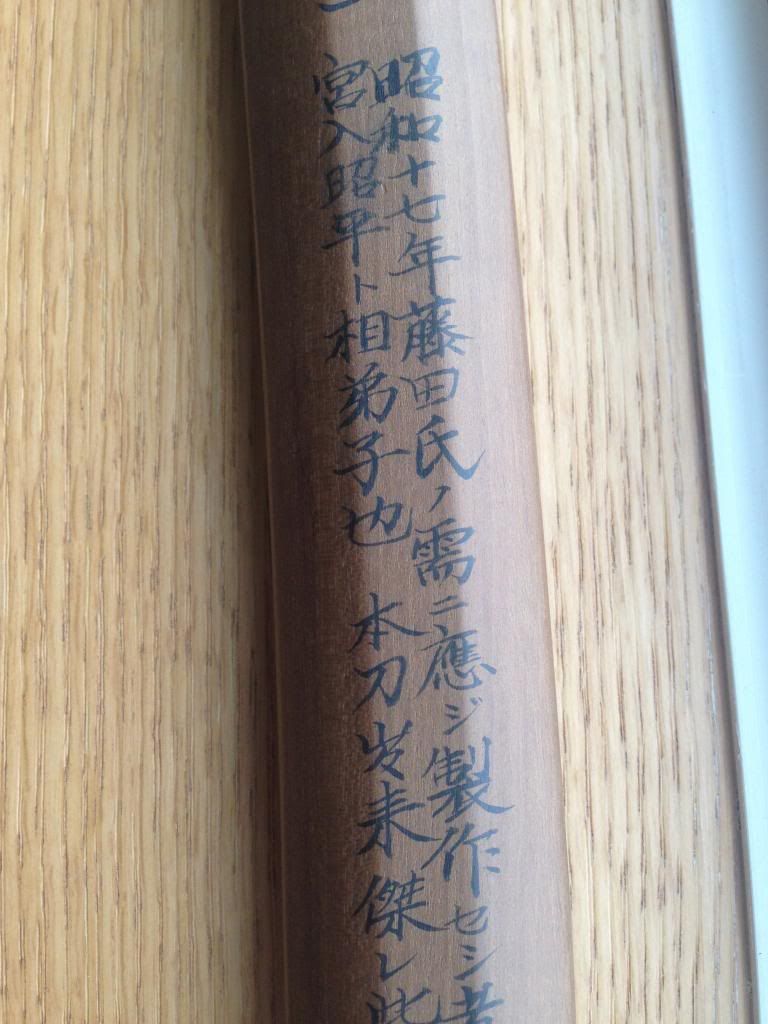 昭和十七年藤田氏ノ需ニ應ジ製作セシ者
宮入昭平ト相弟子也 本刀出来傑レ此